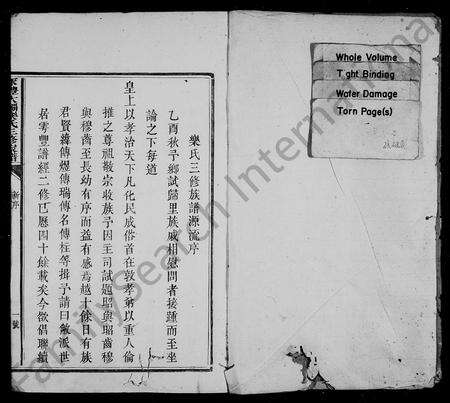 樂氏三修族譜源流序
乙酉秋予鄉試歸里族戚相慰問者接踵而至坐
論之下每道
皇上以孝治天下凡化民成俗首在敦孝弟以重人倫
推之尊祖敬宗收族予因主司試題昭與昭齒穆
與穆齒至長幼有序而益有感焉越十餘日有族
君賢濤傳纓傳瑞傳名傳柱等揖予請曰敝派世
居雩豐譜經二修已歷四十餘載矣今欲倡聯續
新序
一號
Whole Volume
Tight Binding
Water Damage
Torn Page(s)
FamilySearch International